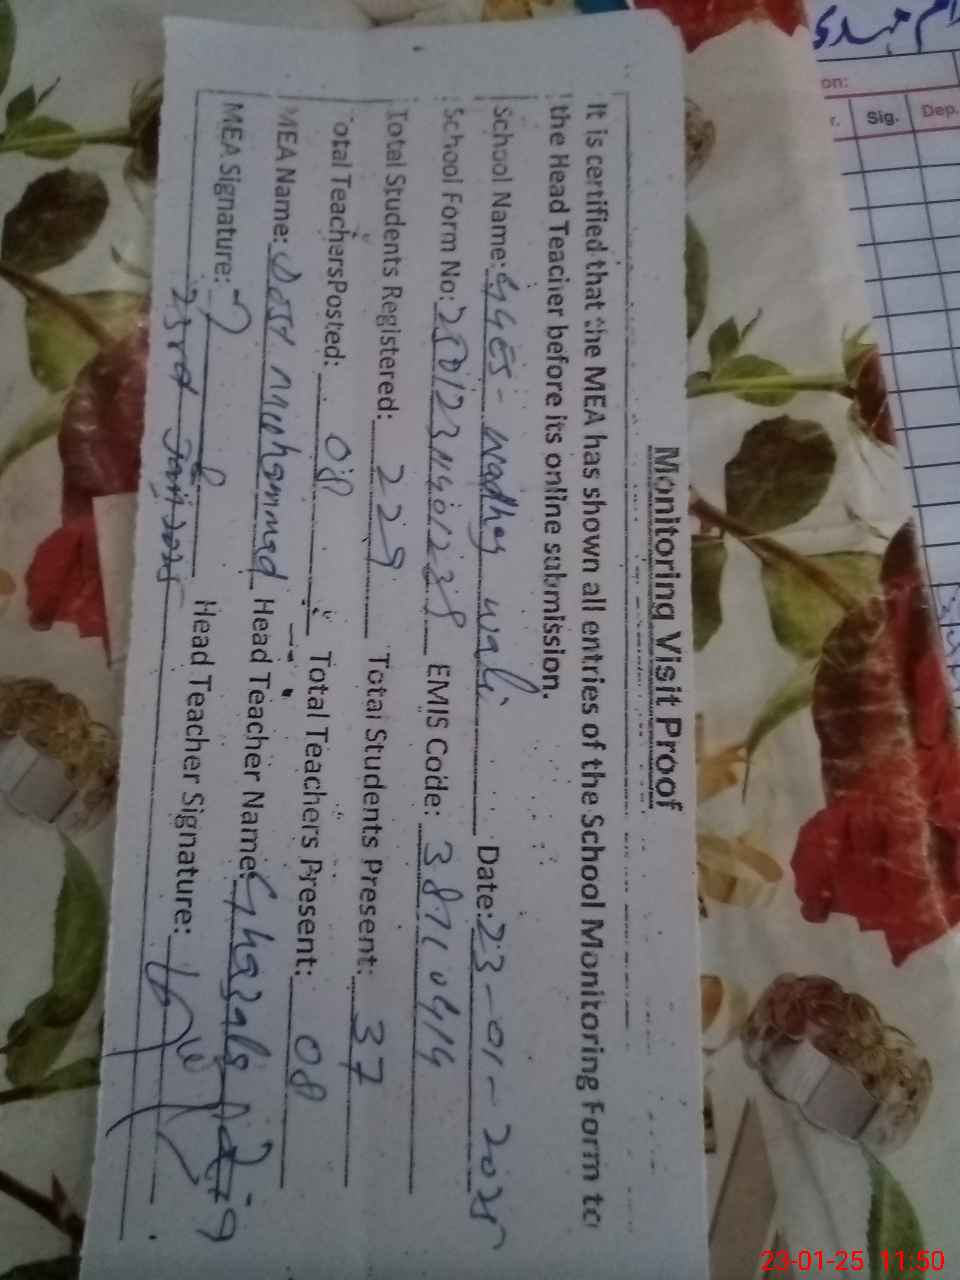 Monitoring Visit Proof
It is certified that the MEA has shown all entries of the School Monitoring Form to
the Head Teacier before its online submission.
School Name: GGES- wadhay wali Date: 23-01-2025
School Form No: EMIS Code: 38710414
Total Students Registered: 229 Total Students Present: 37
Total TeachersPosted: 08 Total Teachers Present: 08
MEA Name: Dost Muhammad Head Teacher Name: Ghazala
MEA Signature: Head Teacher Signature:
23rd Jan 2025
on:
r. Sig. Dep.
23-01-25 11:50